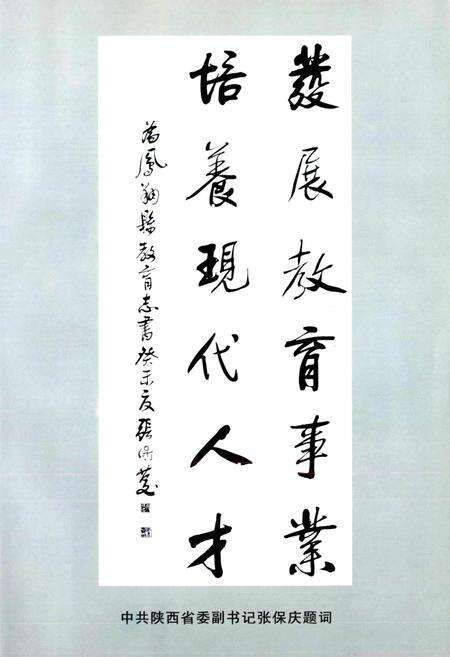 發展教育事業
培養現代人才
為鳳翔縣教育志書癸未夏張保慶
中共陕西省委副书记张保庆题词